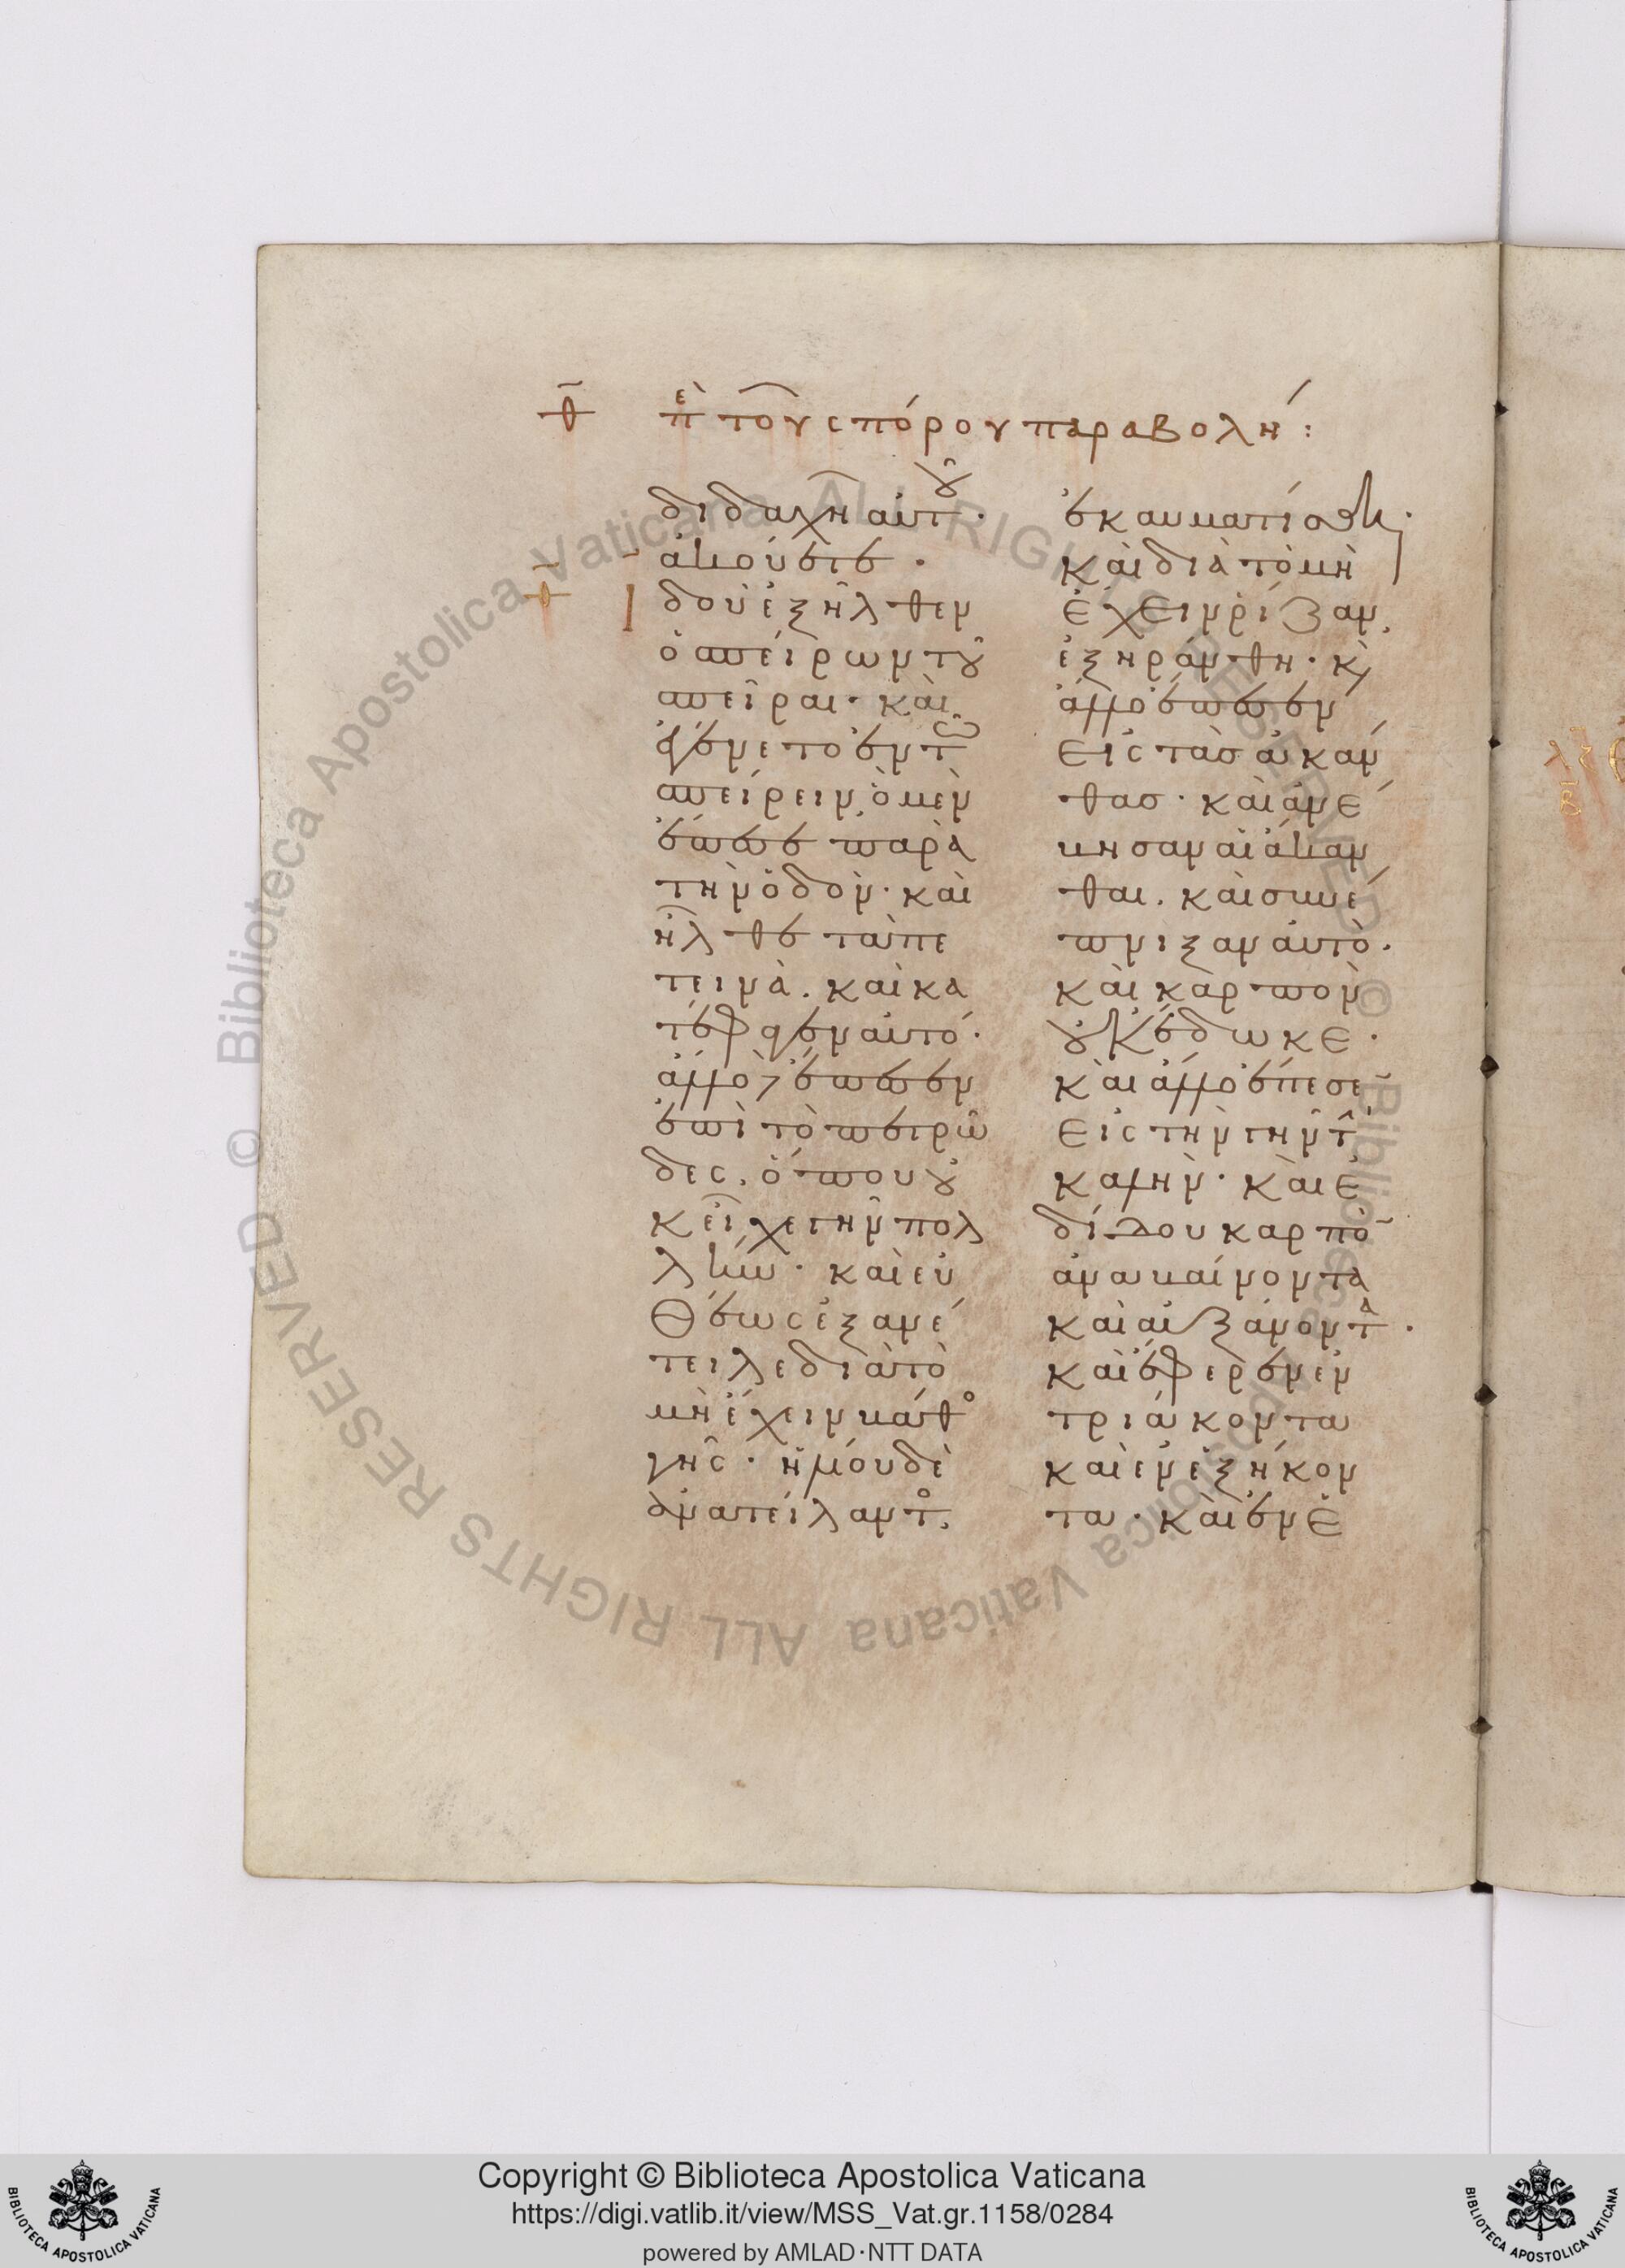 θ̄ πὲ τοῦ σπόρου παραβολή:
διδαχῆ αὐτοῦ·
ἀκούετε·
θ̄ Ἰδοὺ ἐξῆλθεν
ὁ σπείρων τοῦ
σπεῖραι· καὶ
ἐγένετο ἐν τῶ
σπείρειν, ὁ μὲν
ἔπεσε παρὰ
τὴν ὁδόν· καὶ
ἦλθε τὰ πε
τεινὰ. καὶ κα
τέφαγεν αὐτό·
ἄλλο δὲ ἔπεσεν
ἐπὶ τὸ πετρῶ
δες. ὅπου οὐ
κ εἶχε γῆν πολ
λήν· καὶ εὐ
θέως ἐξανέ
τειλε διὰ τὸ
μὴ ἔχειν βάθο
γῆς· ἡλίου δὲ
ἀνατείλαντο.
ἐκαυματίσθη·
καὶ διὰ τὸ μὴ
ἔχειν ῥίζαν,
ἐξηράνθη· κὶ
ἄλλο ἔπεσεν
εἰς τὰσ ἀκάν
θασ· καὶ ἀνέ
βησαν αἱ ἄκαν
θαι. καὶ συνέ
πνιξαν αὐτό·
καὶ καρπὸν
οὐκ ἔδωκε·
καὶ ἄλλο ἔπεσε
εἰς τὴν γῆν τὴ
καλήν· καὶ ἐ
δίδου καρπὸ
ἀναβαίνοντα
καὶ αὐξάνοντα·
καὶ ἔφερεν ἐν
τριάκοντα
καὶ ἐν ἑξήκον
τα· καὶ ἐν ἑ
© Biblioteca Apostolica Vaticana ALL RIGHTS RESERVED © Biblioteca Apostolica Vaticana ALL RIGHTS RESERVED
Copyright © Biblioteca Apostolica Vaticana
https://digi.vatlib.it/view/MSS_Vat.gr.1158/0284
powered by AMLAD·NTT DATA
BIBLIOTECA APOSTOLICA VATICANA
BIBLIOTECA APOSTOLICA VATICANA